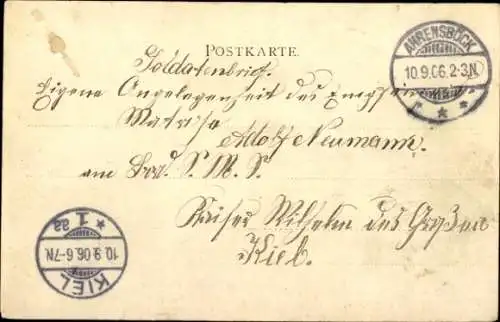 POSTKARTE.
Soldatenbrief.
Eigene Angelegenheit des Empfängers.
Matrose
Adolf Neumann.
am Bord S. M. S.
Kaiser Wilhelm des Großen
Kiel.
AHRENSBÖCK
10.9.06.2-3.N.
KIEL
10.9.06.6-7N.
* 1 aa